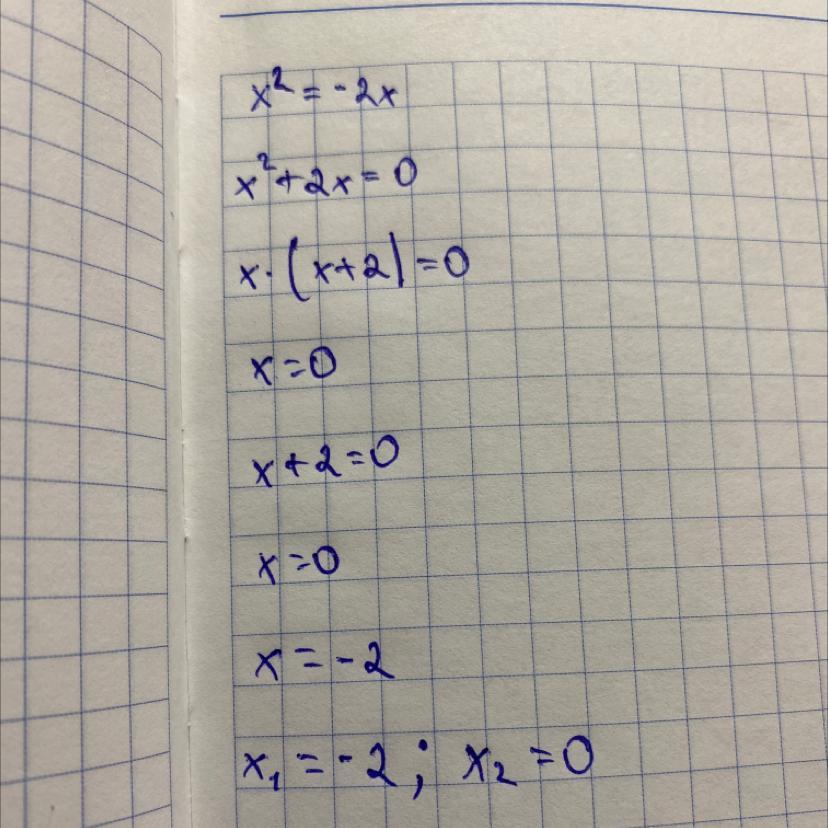 x² = -2x
x² + 2x = 0
x · (x+2) = 0
x = 0
x + 2 = 0
x = 0
x = -2
x₁ = -2 ; x₂ = 0